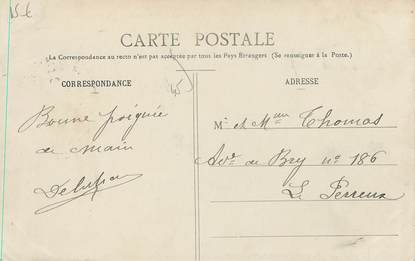 CARTE POSTALE
La Correspondance au recto n'est pas acceptée par tous les Pays Étrangers (Se renseigner à la Poste.)
CORRESPONDANCE
Bonne poignée
de main
ADRESSE
Mr et Mme Thomas
Ave de Bry no 186
Le Perreux